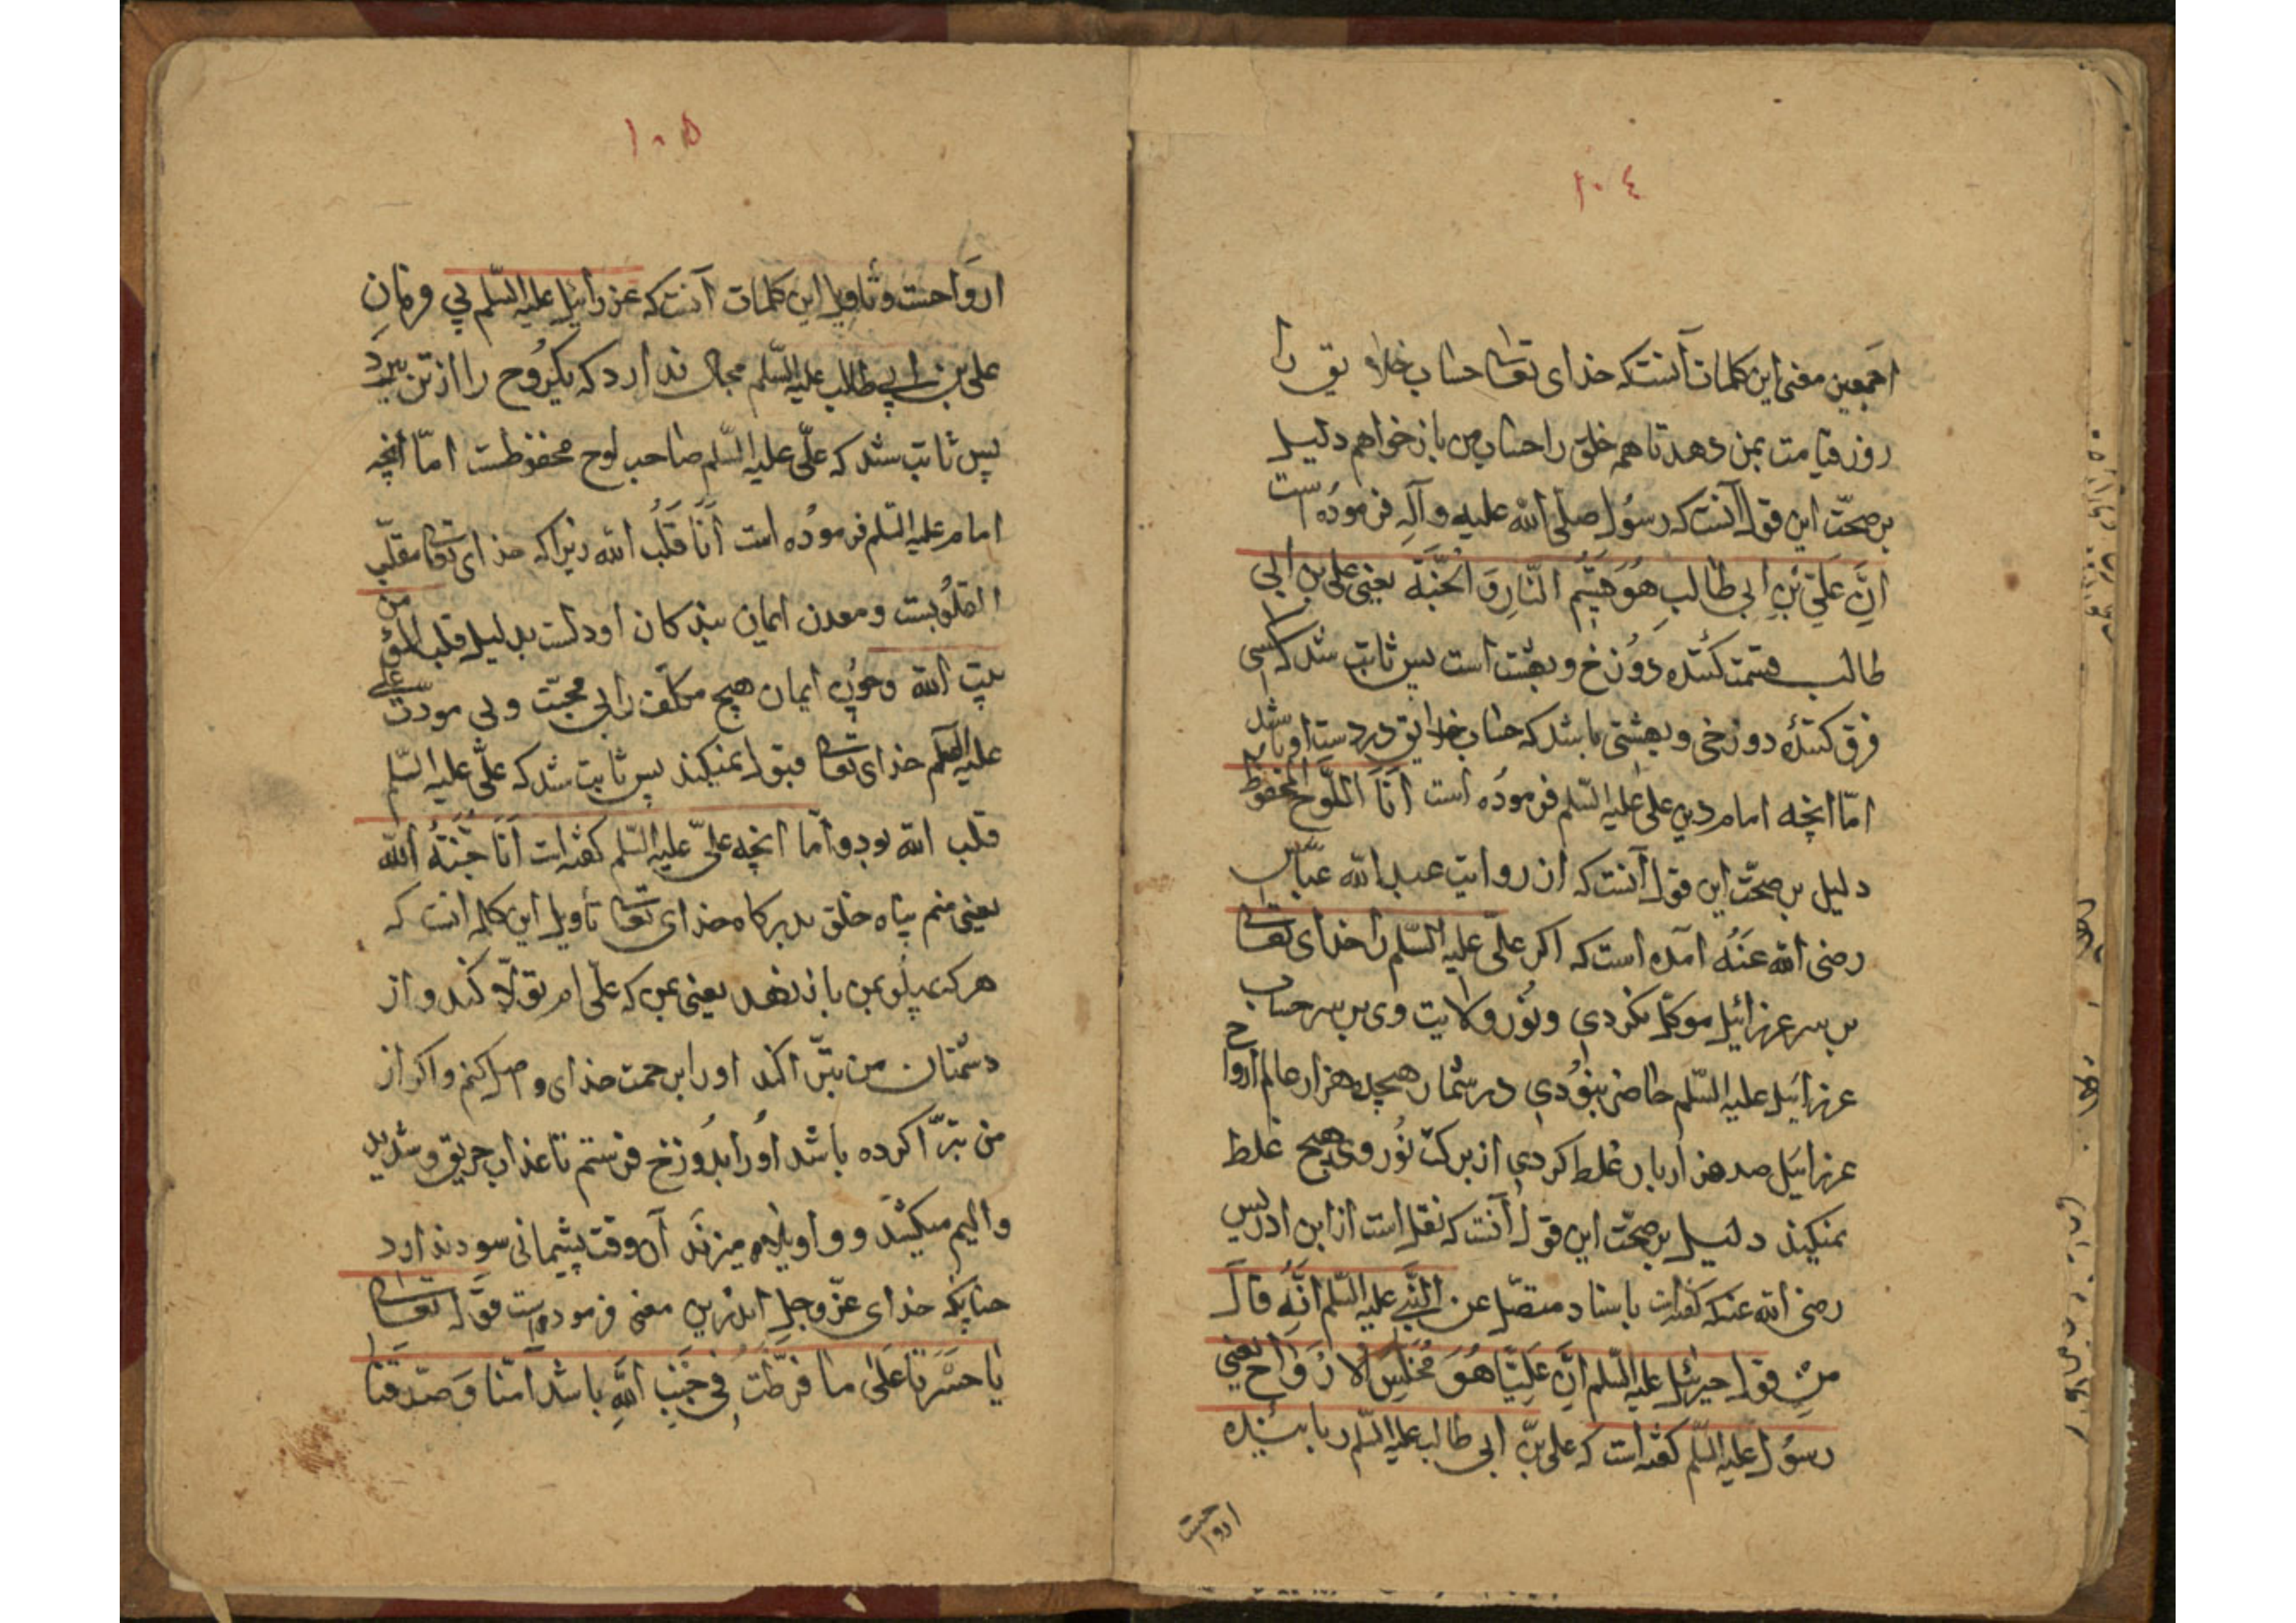 ١٠٤
اجمعین معنی این کلمات آنست که خدای تعالی حساب خلایق را
روز قیامت بمن دهد تا همه خلق را حساب من باز خواهم دلیل
بر صحّت این قول آنست که رسُول صلّی الله علیه وآلِه فرمودُه است
اِنَّ عَلَیّ بْنِ ابی طالبِ هُوَ قَسِیْمُ النّارِ وَ الْجَنَّه یعنی علی بن ابی
طالب قسمت کُننده دوُزخ و بهشت است پس ثابت شد که کسی
فرق کننده دوزخی و بهشتی باشد که حساب خلایق در دست او باشد
امّا انچه امام دین علی علیه السّلم فرمودُه است اَنَا اللَّوْح المحفوظ
دلیل بر صحّت این قول آنست که از روایت عبدالله عبّاس
رضی الله عَنْهُ آمده است که اکر علیّ علیه السّلم را خدای تعالی
بر سر عزرائیل موکّل نکردی و نُور ولایت وی بر سر حساب
عزرائیل علیه السّلم حاضر نبوُدی در شمار هیجده هزار عالم ارواح
عزرائیل صد هزار بار غلط کردی از برکت نُور وی هیچ غلط
نمیکند دلیل بر صحّت این قول آنست که نقل است از ابن ادریس
رضی الله عنه که گفت باسناد متصّل عن النّبی علیه السّلم انَّهُ قالَ
مِنْ قول جبرئیل علیه السّلم اِنَّ عَلِیًّا هُوَ مُخَلِّسُ لاَرْوَاح یعنی
رسُول علیه السّلم کفته است که علی بن ابی طالب علیه السّلم ربایننده
ارواحست
١٠٥
اروَاحست وتأویل این کلمات آنست که عزرائیل علیه السّلم بی فرمانِ
علی بن ابی طالب علیه السّلم مجال ندارد که یکرُوح را از تن ببرد
پس ثابت شد که علیّ علیه السّلم صاحب لوح محفوظست امّا انچه
امام علیه السّلم فرمودُه است اَنَا قَلْبُ الله زیرا که خدای تعالی مقلّب
القلُوبست و معدن ایمان بندکان او دلست بدلیل قلب المؤمن
بیت الله و چون ایمان هیچ مکلّف را بی محبّت و بی مودت علی
علیه السّلم خدای تعالی قبول نمیکند پس ثابت شد که علیّ علیه السّلم
قلب الله بود و امّا انچه علیّ علیه السّلم کفته است اَنَا جَنْبُ الله
یعنی منم پناه خلق بدرکاه خدای تعالی تأویل این کلمه انست که
هر که پهلو بمن باز نهد یعنی بمن که علیّ ام تولّا کند و از
دشمنان من تبرّا کند او را برحمت خدای واصل کنم و اکر از
من تبرّا کرده باشد اوُرا بدُوزخ فرستم تا عذاب حریق و شدید
والیم میکشد و واویلاه میزند آن وقت پشیمانی سود ندارد
چنانکه خدای عزّ وجل اندرین معنی فرمودست قوله تعالی
یا حَسْرَتا عَلَی ما فرّطْتُ فی جَنْبِ اللهِ باشد آمنّا وَ صَدّقنا